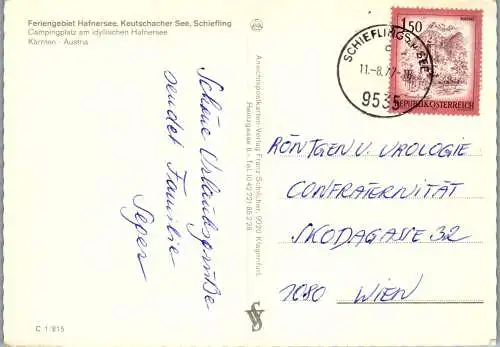 Feriengebiet Hafnersee, Keutschacher See, Schiefling
Campingplatz am idyllischen Hafnersee
Kärnten - Austria
Schöne Urlaubsgrüße
sendet Familie
C 1/815
Ansichtspostkarten-Verlag Franz Schilcher, 9020 Klagenfurt
SCHIEFLING A. SEE
11.-8.77
9535
1.50
REPUBLIK ÖSTERREICH
RÖNTGEN U. UROLOGIE
CONFRATERNITÄT
SKODAGASSE 32
1080 WIEN